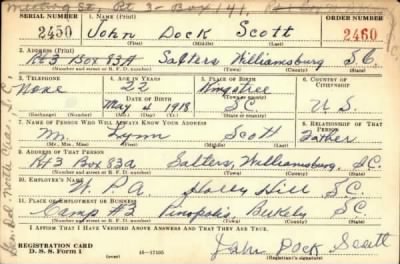 Meeting St, Rt 3 - Box 141,
SERIAL NUMBER 1. NAME (Print) ORDER NUMBER
2450 John Dock Scott 2460
(First) (Middle) (Last)
2. ADDRESS (Print)
Rt 3 Box 83A Salters Williamsburg S.C.
(Number and street or R. F. D. number) (Town) (County) (State)
3. TELEPHONE 4. AGE IN YEARS 5. PLACE OF BIRTH 6. COUNTRY OF CITIZENSHIP
None 22 Kingstree
DATE OF BIRTH (Town or county)
May 4 1918 SC U S.
(Exchange) (Number) (Mo.) (Day) (Yr.) (State or country)
7. NAME OF PERSON WHO WILL ALWAYS KNOW YOUR ADDRESS 8. RELATIONSHIP OF THAT PERSON
M. Lynn Scott Father
(Mr., Mrs., Miss) (First) (Middle) (Last)
9. ADDRESS OF THAT PERSON
Rt 3 Box 83a Salters, Williamsburg, SC.
(Number and street or R. F. D. number) (Town) (County) (State)
10. EMPLOYER'S NAME
W. P. A. Holly Hill SC
11. PLACE OF EMPLOYMENT OR BUSINESS
Camp #3 Pinopolis, Berkely SC
(Number and street or R. F. D. number) (Town) (County) (State)
I AFFIRM THAT I HAVE VERIFIED ABOVE ANSWERS AND THAT THEY ARE TRUE.
REGISTRATION CARD
D. S. S. Form 1 16-17105 John Dock Scott
(Registrant's signature)